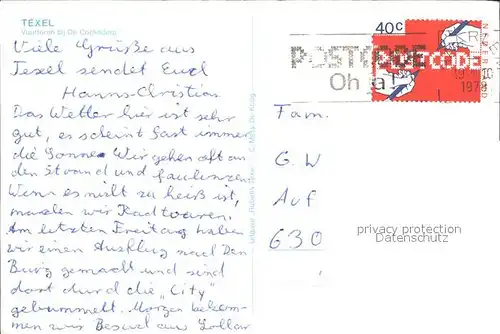 TEXEL
Vuurtoren bij De Cocksdorp
Viele Grüße aus
Texel sendet Euch
Hanns-Christian
Das Wetter hier ist sehr
gut, es scheint fast immer
die Sonne. Wir gehen oft an
den Strand und faulenzen.
Wenn es nicht zu heiß ist,
machen wir Radtouren.
Am letzten Freitag haben
wir einen Ausflug nach Den
Burg gemacht und sind
dort durch die „City"
gebummelt. Morgen bekom-
men wir Besuch aus Lollar
40c
NEDERLAND
POSTCODE
POSTCODE
Oh ja!
1978
Fam.
G. W
Auf
630
privacy protection
Datenschutz